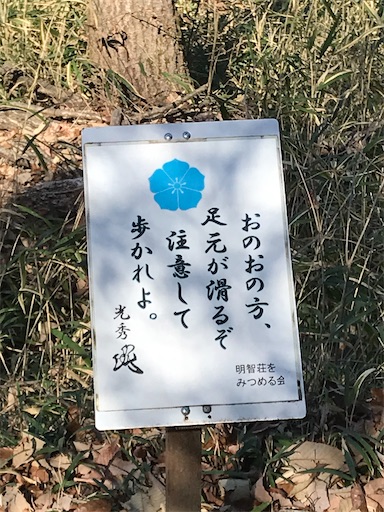 おのおの方、
足元が滑るぞ
注意して
歩かれよ。
光秀
明智荘を
みつめる会